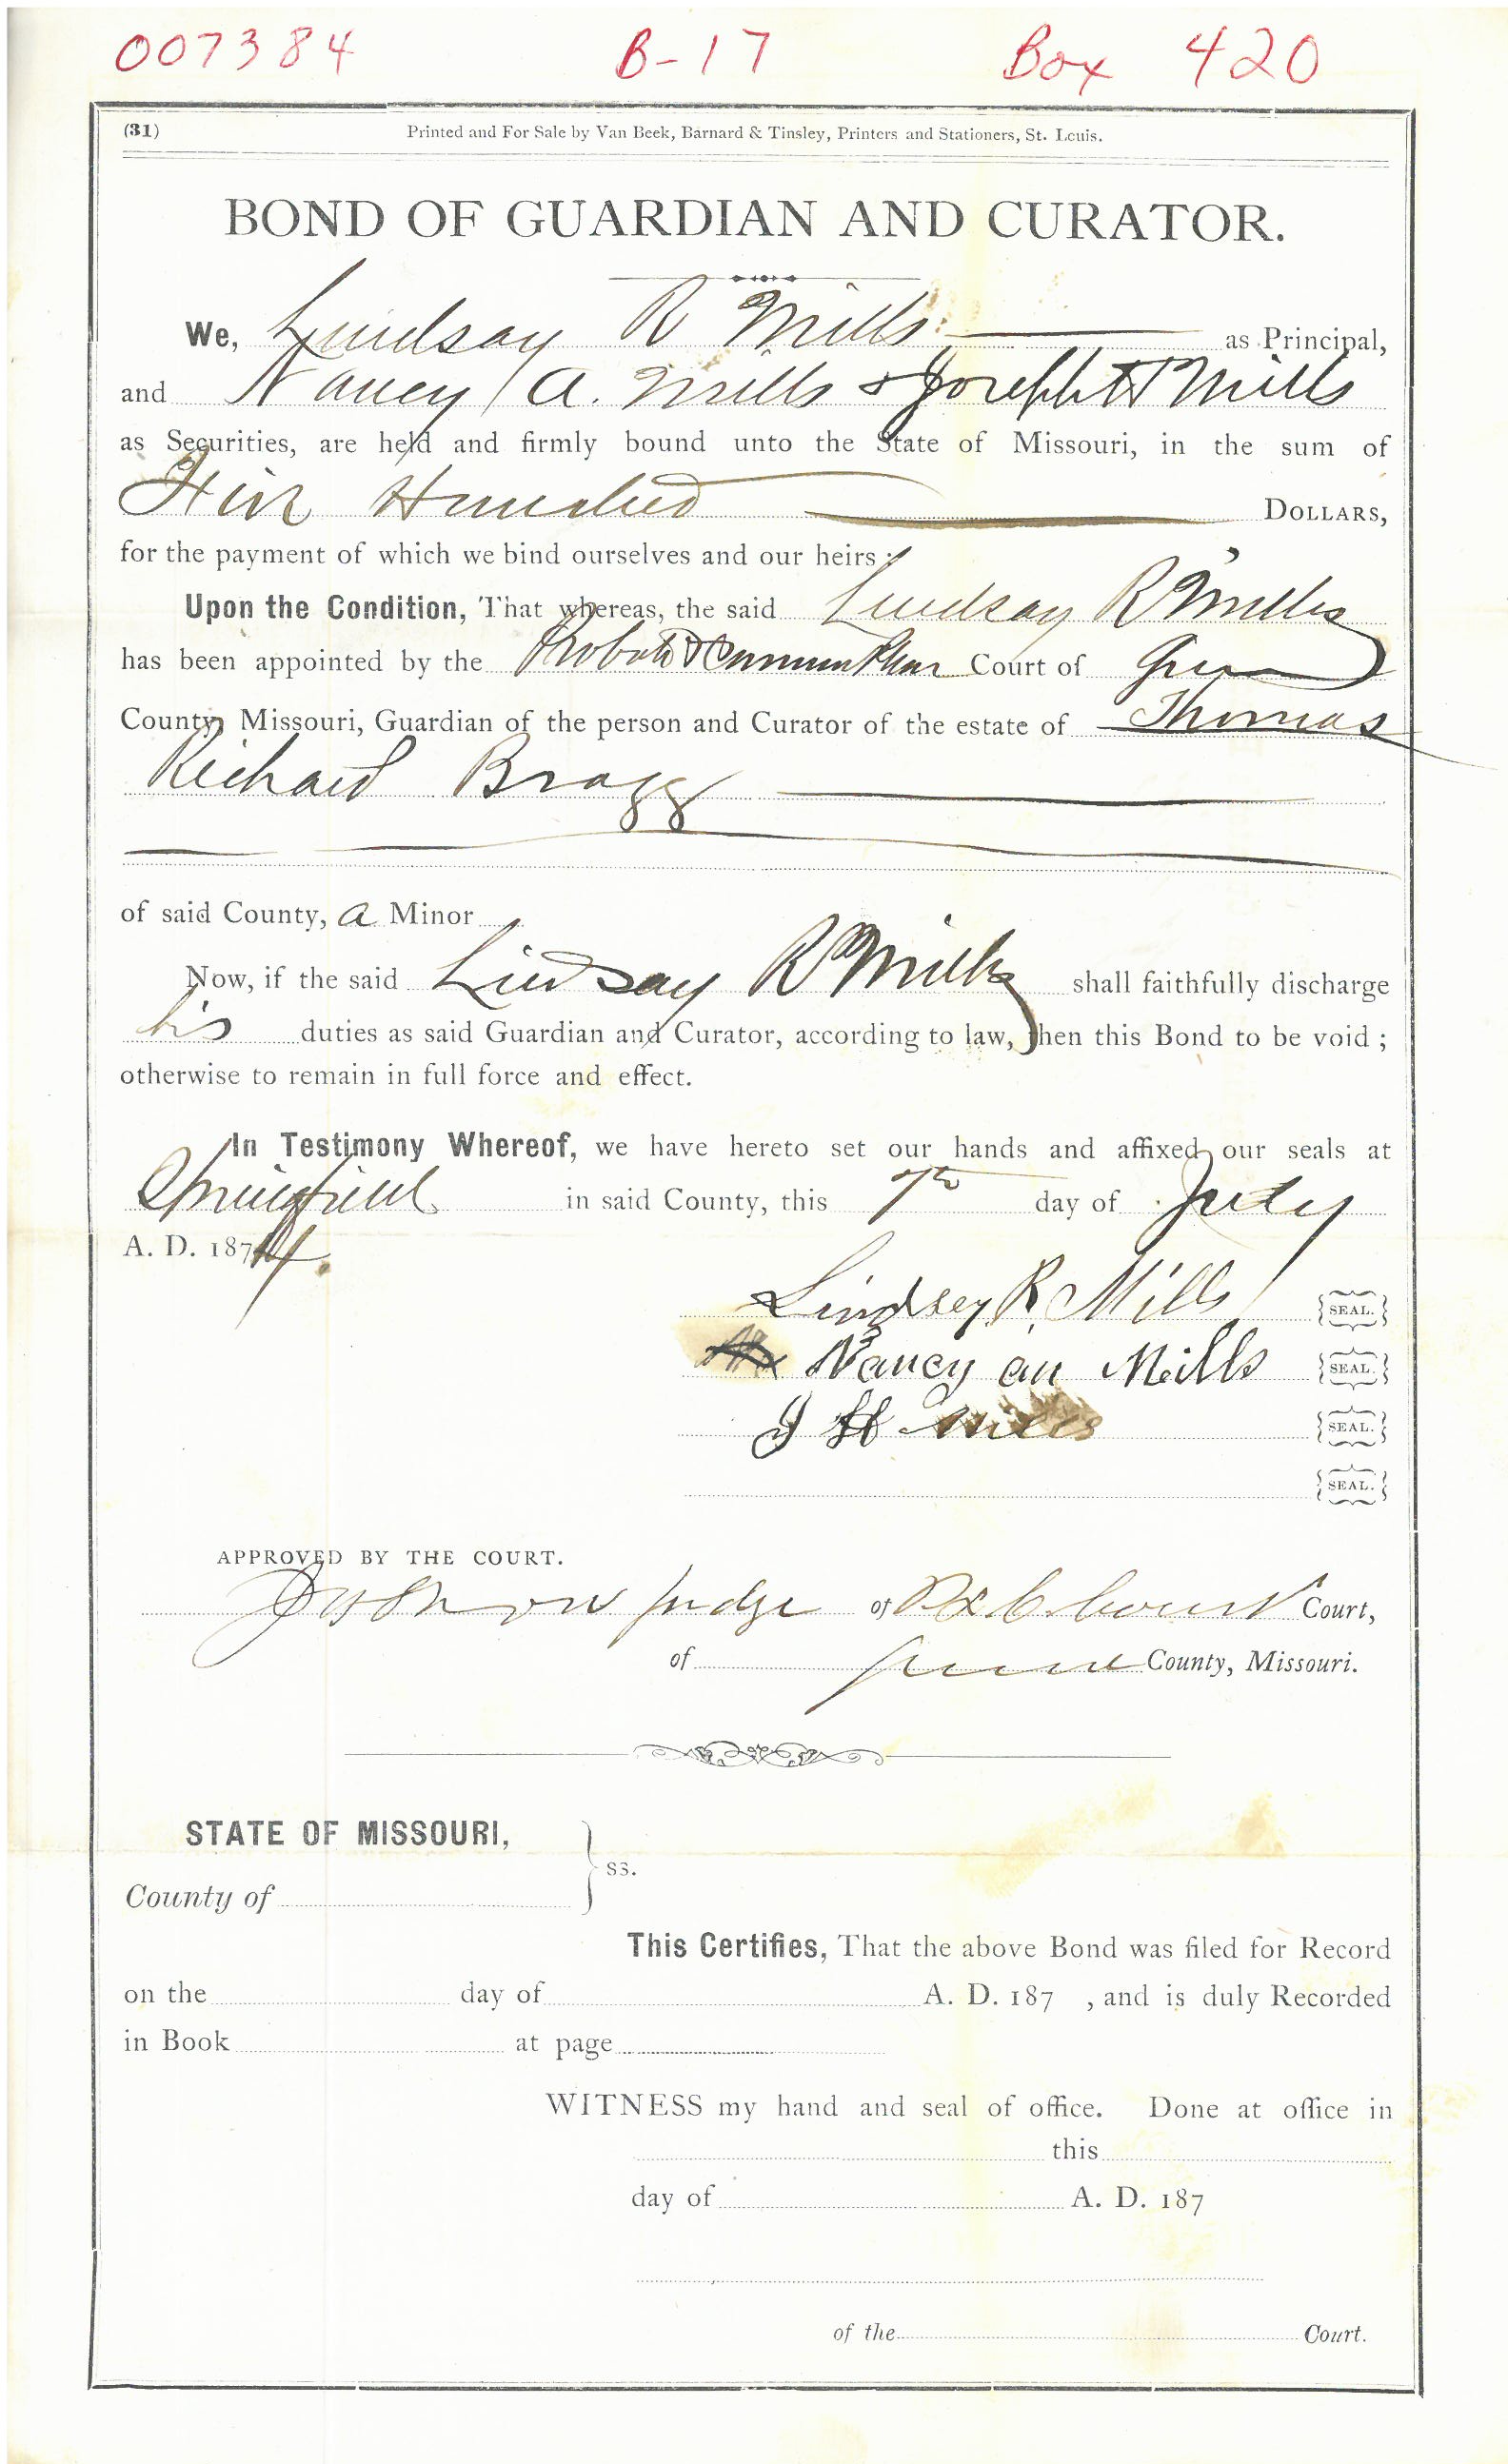 007384 B-17 Box 420
(31) Printed and For Sale by Van Beek, Barnard & Tinsley, Printers and Stationers, St. Louis.
BOND OF GUARDIAN AND CURATOR.
We, Lindsay R Mills as Principal,
and Nancy A. Mills & Joseph H Mills
as Securities, are held and firmly bound unto the State of Missouri, in the sum of
Five Hundred DOLLARS,
for the payment of which we bind ourselves and our heirs;
Upon the Condition, That whereas, the said Lindsay R Mills
has been appointed by the Probate & Common Pleas Court of Green
County, Missouri, Guardian of the person and Curator of the estate of Thomas
Richard Bragg
of said County, a Minor
Now, if the said Lindsay R Mills shall faithfully discharge
his duties as said Guardian and Curator, according to law, then this Bond to be void;
otherwise to remain in full force and effect.
In Testimony Whereof, we have hereto set our hands and affixed our seals at
Springfield in said County, this 7th day of July
A. D. 1874.
Lindsey R. Mills SEAL.
Nancy an Mills SEAL.
J H Mills SEAL.
SEAL.
APPROVED BY THE COURT.
Judge of Court,
of Greene County, Missouri.
STATE OF MISSOURI,
ss.
County of
This Certifies, That the above Bond was filed for Record
on the day of A. D. 187 , and is duly Recorded
in Book at page
WITNESS my hand and seal of office. Done at office in
this
day of A. D. 187
of the Court.